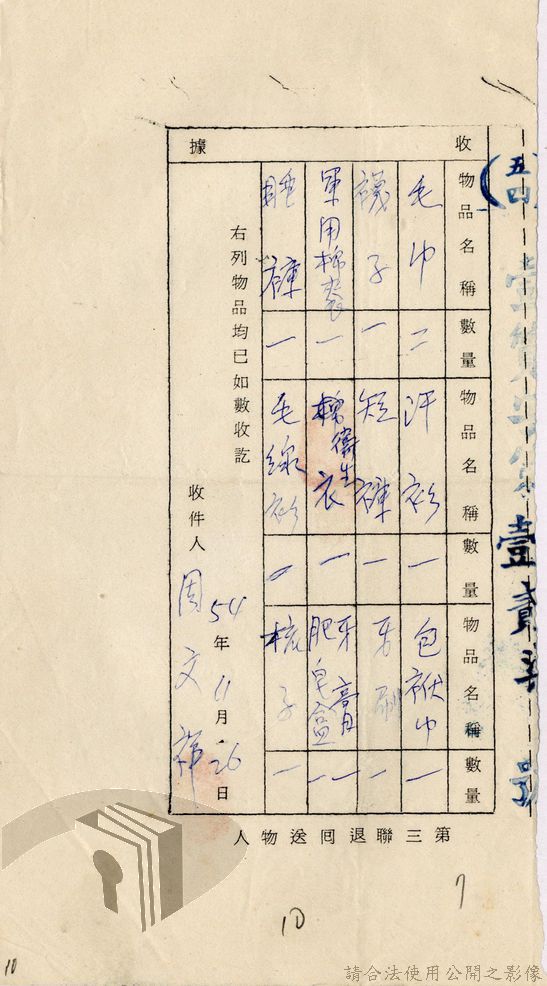 （五四）
壹貳
號
收據
物品名稱 數量 物品名稱 數量 物品名稱 數量
毛巾 二 汗衫 一 包袱巾 一
襪子 一 短褲 一 牙刷 一
軍用棉 一 棉衛生衣 一 牙膏 一
肥皂盒 一
睡褲 一 毛線衫 一 梳子 一
右列物品均已如數收訖
54年11月26日
收件人 周文祥
第三聯退回送物人
7
10
10
請合法使用公開之影像